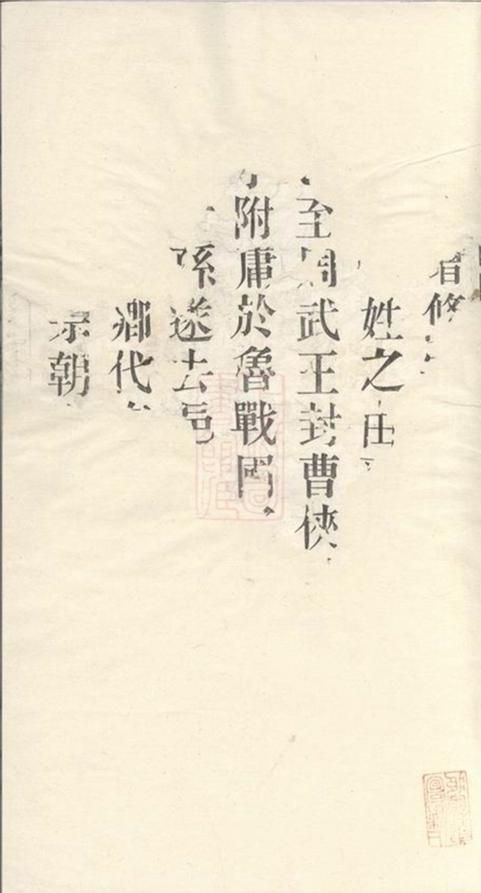 者修
姓之由
至周武王封曹俠
附庸於魯戰國
孫遂去邑
鄉代
宗朝